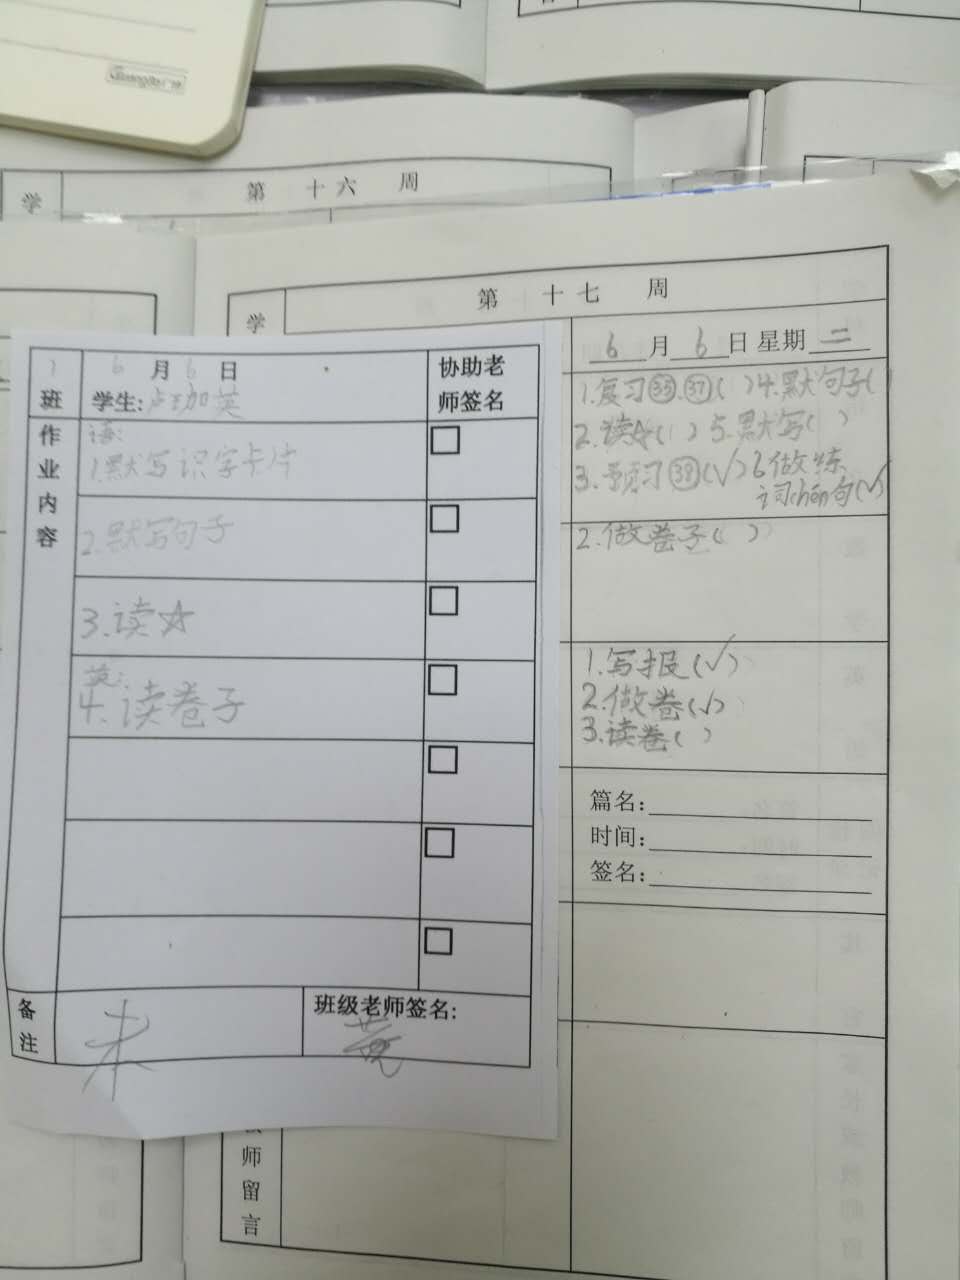 Guangbo
学
第 十六 周
第 十七 周
学
6月6日 星期二
1.复习㉟.㊲( ) 4.默句子( )
2.读☆( ) 5.默写( )
3.预习㊳(√) 6.做练
词chāo句(√)
2.做卷子( )
1.写报(√)
2.做卷(√)
3.读卷( )
篇名:
时间:
签名:
师
留
言
班
6月6日
学生:
协助老
师签名
作
业
内
容
语:
1.默写识字卡片
2.默写句子
3.读☆
英:
4.读卷子
备
注
班级老师签名:
黄